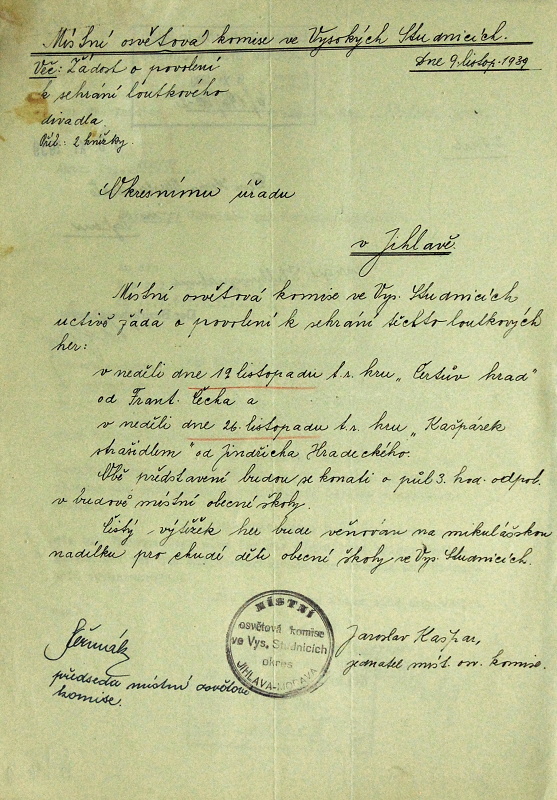 Místní osvětová komise ve Vysokých Studnicích.
Věc: Žádost o povolení
Dne 9. listop. 1939
k sehrání loutkového
divadla.
Příl.: 2 knížky.
Okresnímu úřadu
v Jihlavě.
Místní osvětová komise ve Vys. Studnicích
uctivě žádá o povolení k sehrání těchto loutkových
her:
v neděli dne 19 listopadu t.r. hru „Čertův hrad"
od Frant. Čecha a
v neděli dne 26. listopadu t.r. hru „Kašpárek
strašidlem" od Jindřicha Hradeckého.
Obě představení budou se konati o půl 3. hod. odpol.
v budově místní obecné školy.
Čistý výtěžek her bude věnován na mikulášskou
nadílku pro chudé děti obecné školy ve Vys. Studnicích.
MÍSTNÍ
osvětová komise
ve Vys. Studnicích
okres
JIHLAVA-MORAVA
Čermák
předseda místní osvětové
komise.
Jaroslav Kašpar,
jednatel míst. osv. komise.